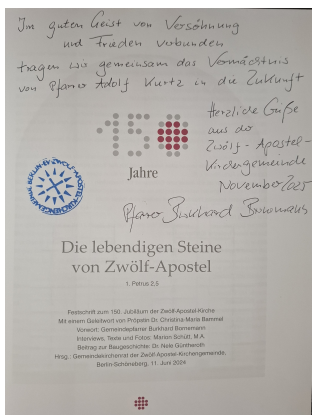 Im guten Geist von Versöhnung
und Frieden verbunden
tragen wir gemeinsam das Vermächtnis
von Pfarrer Adolf Kurtz in die Zukunft
Herzliche Grüße
aus der
Zwölf-Apostel-
Kirchengemeinde
November 2025
Pfarrer Burkhard Bornemann
150
Jahre
Die lebendigen Steine
von Zwölf-Apostel
1. Petrus 2,5
Festschrift zum 150. Jubiläum der Zwölf-Apostel-Kirche
Mit einem Geleitwort von Pröpstin Dr. Christina-Maria Bammel
Vorwort: Gemeindepfarrer Burkhard Bornemann
Interviews, Texte und Fotos: Marion Schütt, M.A.
Beitrag zur Baugeschichte: Dr. Nele Güntheroth
Hrsg.: Gemeindekirchenrat der Zwölf-Apostel-Kirchengemeinde,
Berlin-Schöneberg, 11. Juni 2024